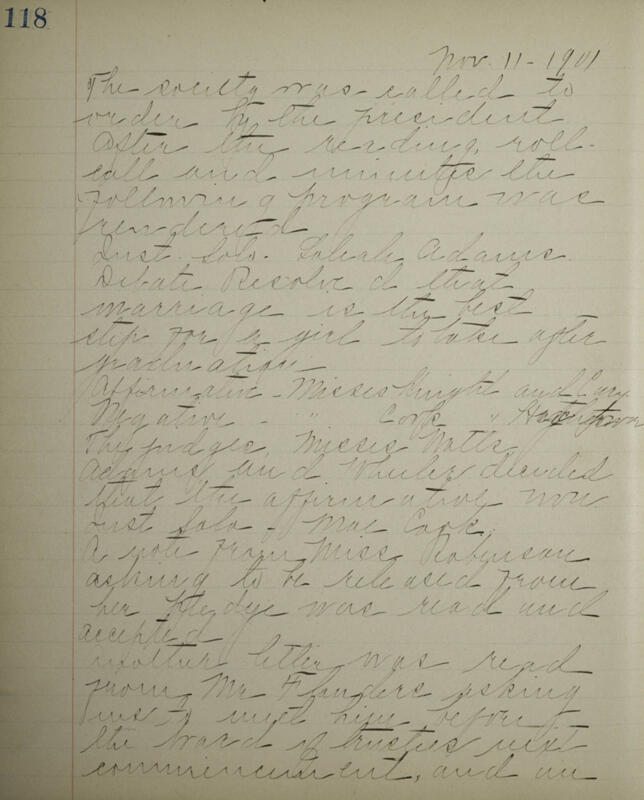 118
Nov. 11 - 1901
The society was called to
order by the president
After the reading, roll-
call and minutes the
following program was
rendered
Inst. Solo. Adams.
Debate Resolved that
marriage is the best
step for a girl to take after
graduation
Affirmative - Misses Knight and
Negative - " Cook "
The judges, Misses Watts
Adams and decided
that the affirmative won
Inst Solo - Mae Cook.
A note from Miss Robinson
asking to be released from
her pledge was read and
accepted
Another letter was read
from Mr Flanders asking
us to meet him before
the board of trustees next
commencement, and an